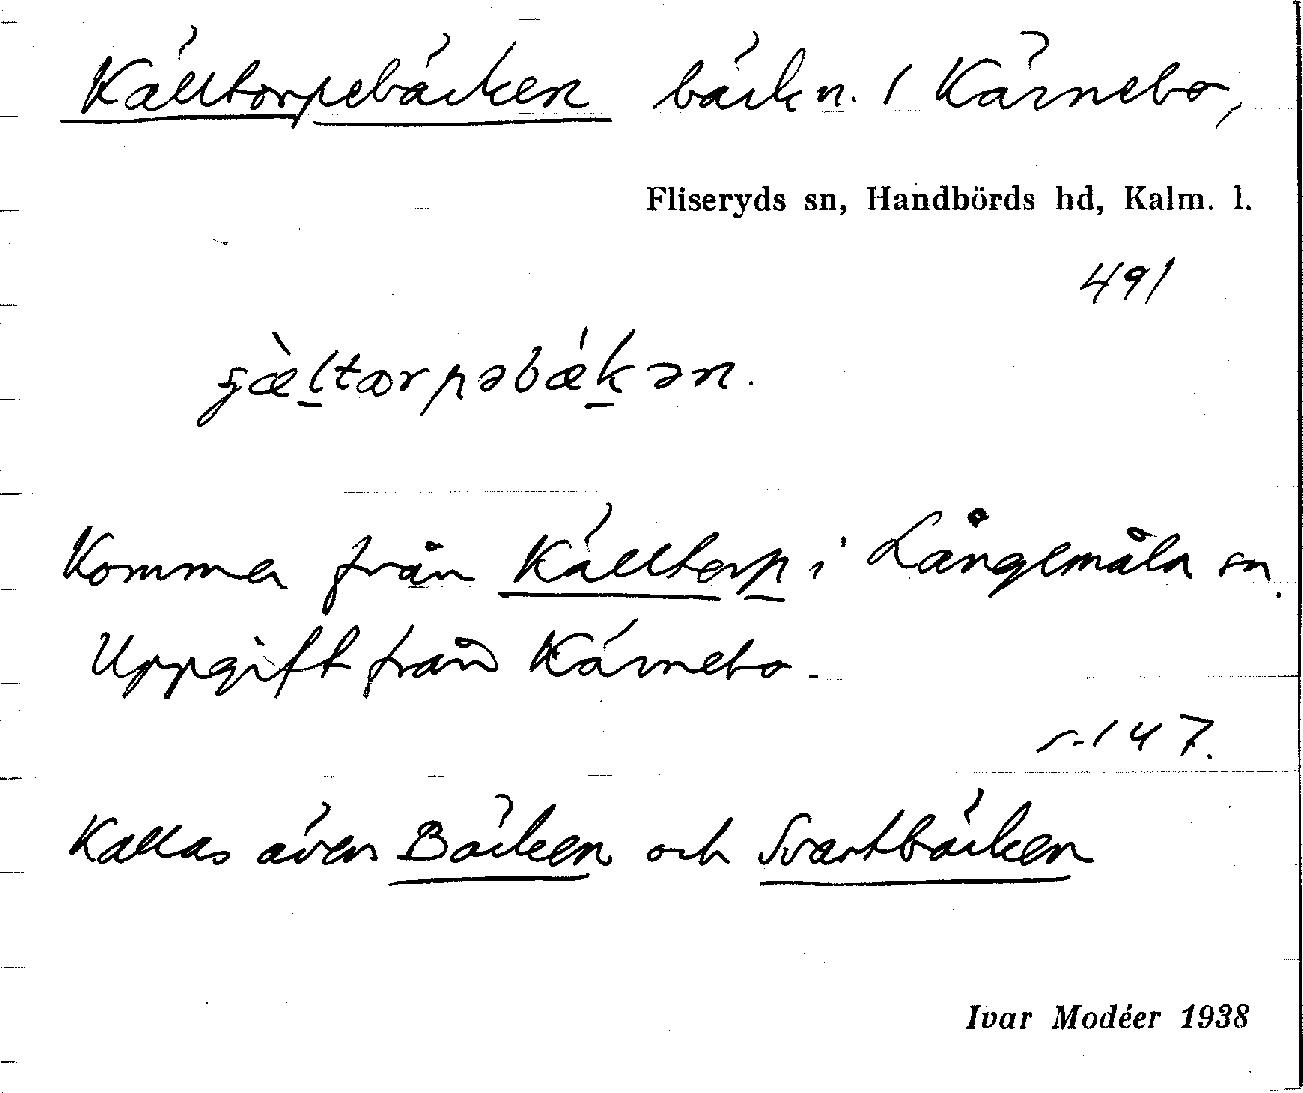 Källtorpebäcken bäck n. i Kärnebo,
Fliseryds sn, Handbörds hd, Kalm. l.
491
Kommer från Källtorp i Långemåla sn.
Uppgift från Kärnebo.
s. 147.
Kallas även Bäcken och Svartbäcken
Ivar Modéer 1938